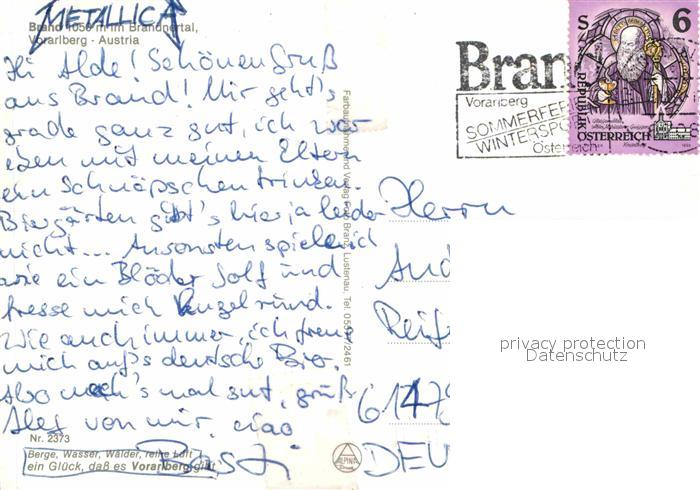 METALLICA
Brand 1050 m im Brandnertal,
Vorarlberg - Austria
Hi Alde! Schönen Gruß
aus Brand! Mir geht's
grade ganz gut, ich war
eben mit meinen Eltern
ein Schnäpschen trinken.
Biergärten gibt's hier ja leider
nicht... Ansonsten spiele ich
wie ein Blöder Golf und
fresse mich kugelrund.
Wie auch immer, ich freu
mich auf's deutsche Bier.
Also mach's mal gut, grüß
Alex von mir, ciao
Basti
Nr. 2373
Berge, Wasser, Wälder, reine Luft
ein Glück, daß es Vorarlberg gibt
Lustenau, Tel. 05577/2461
ALPINA
Bran
Vorarlberg
SOMMERFE
WINTERSPO
Österreich
S 6
REPUBLIK
ÖSTERREICH
Herrn
And
Reif
61479
DEU
privacy protection
Datenschutz